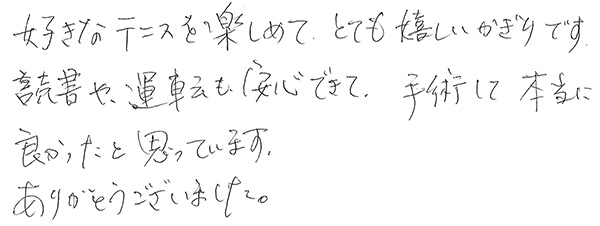 好きなテニスを楽しめて、とても嬉しいかぎりです。
読書や、運転も、安心できて、手術して本当に
良かったと思っています。
ありがとうございました。